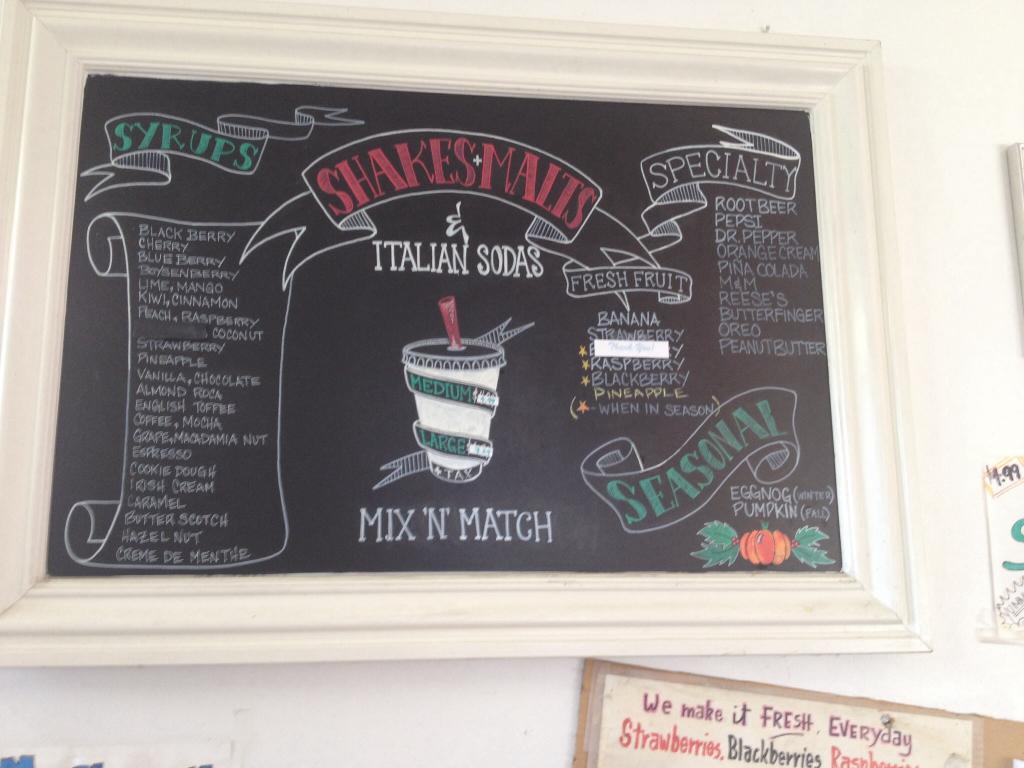 SYRUPS
BLACK BERRY
CHERRY
BLUE BERRY
BOYSENBERRY
LIME, MANGO
KIWI, CINNAMON
PEACH, RASPBERRY
COCONUT
STRAWBERRY
PINEAPPLE
VANILLA, CHOCOLATE
ALMOND ROCA
ENGLISH TOFFEE
COFFEE, MOCHA
GRAPE, MACADAMIA NUT
ESPRESSO
COOKIE DOUGH
IRISH CREAM
CARAMEL
BUTTER SCOTCH
HAZEL NUT
CREME DE MENTHE
SHAKES + MALTS
&
ITALIAN SODAS
MEDIUM
LARGE
+ TAX
MIX 'N' MATCH
SPECIALTY
ROOT BEER
PEPSI
DR. PEPPER
ORANGE CREAM
PIÑA COLADA
M&M
REESE'S
BUTTERFINGER
OREO
PEANUT BUTTER
FRESH FRUIT
BANANA
STRAWBERRY
Thank You!
RASPBERRY
BLACKBERRY
PINEAPPLE
( - WHEN IN SEASON)
SEASONAL
EGGNOG (WINTER)
PUMPKIN (FALL)
We make it FRESH, EVERYDAY
Strawberries, Blackberries, Raspberries